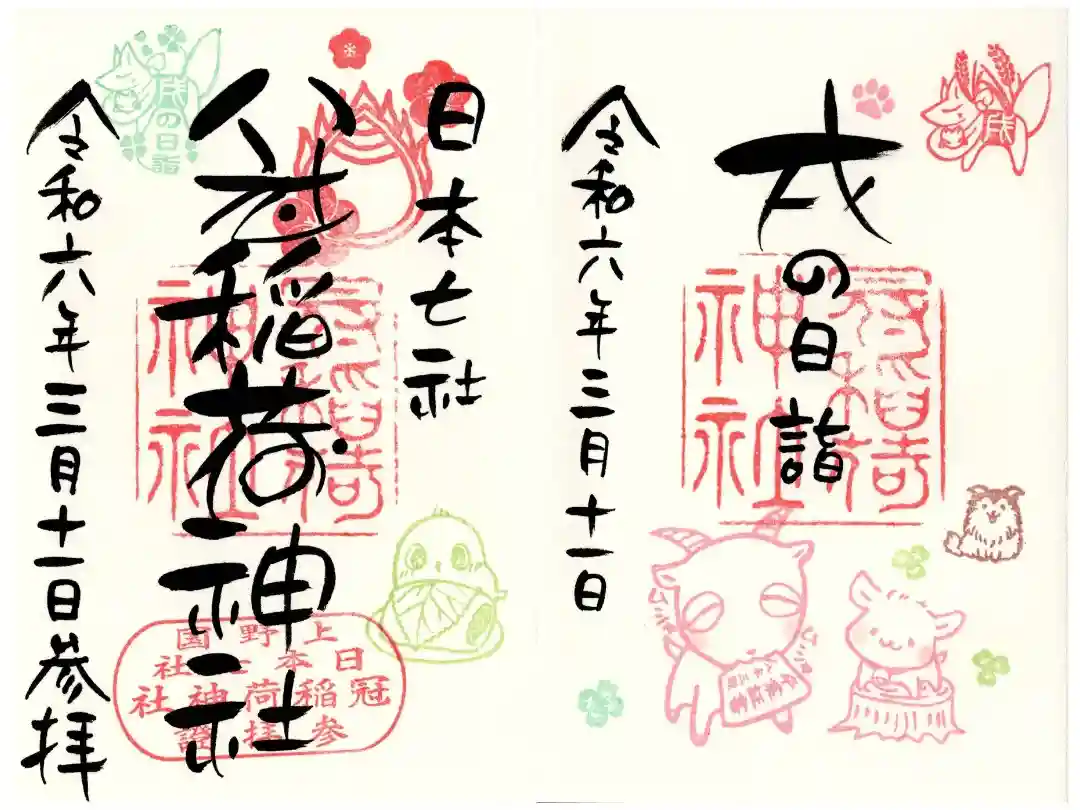 戌の日詣
令和六年三月十一日
戌
日本七社
冠稲荷神社
令和六年三月十一日参拝
戌の日詣
冠稲荷神社
上野国
日本七社
冠稲荷神社
参拝證